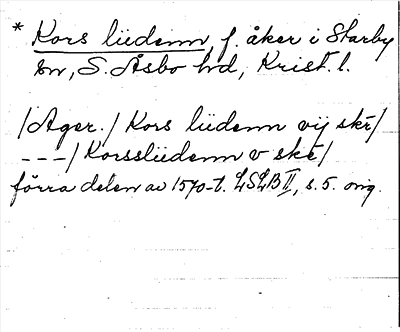 * Kors lüdenn, f. åker i Starby
sn, S. Åsbo hd, Krist. l.
/Ager./ Kors lüdenn vij skr/
---/ Korsslüdenn v ske/
förra delen av 1570-t. LSLB II, s. 5. orig.